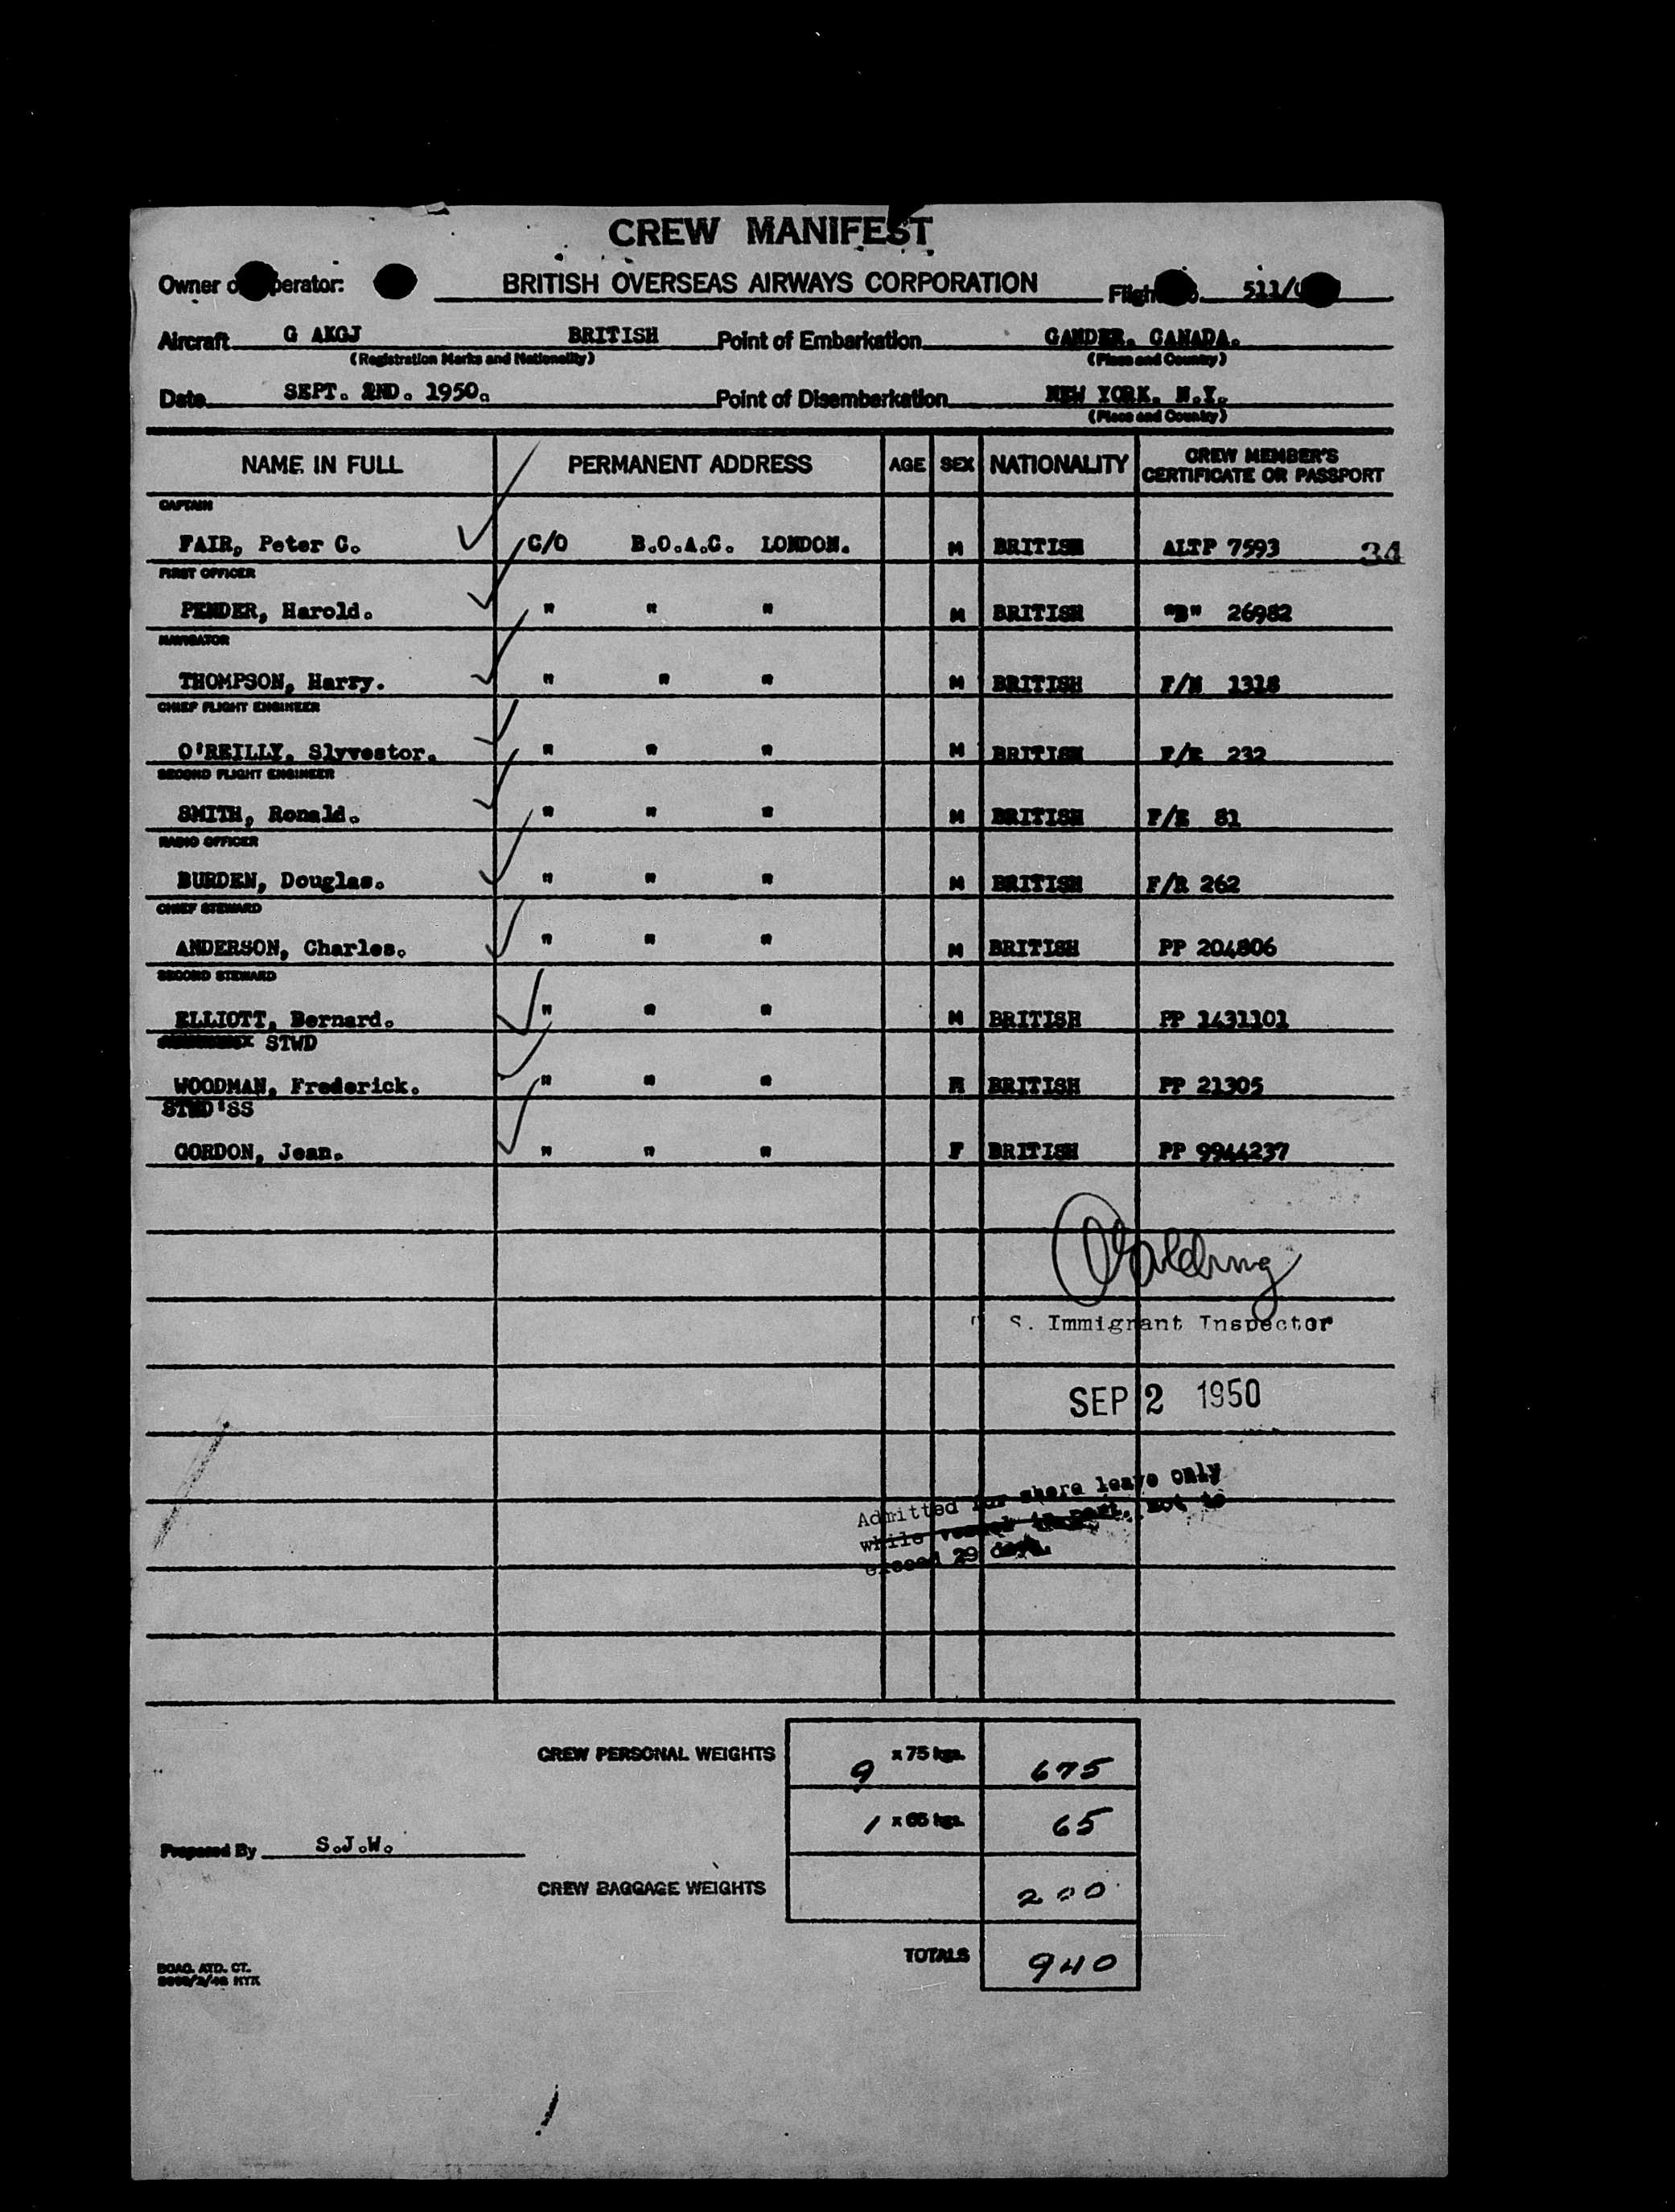 CREW MANIFEST
Owner or Operator: BRITISH OVERSEAS AIRWAYS CORPORATION Flight 511/
Aircraft G AKGJ BRITISH Point of Embarkation GANDER, CANADA.
(Registration Marks and Nationality) (Place and Country)
Date SEPT. 2ND. 1950. Point of Disembarkation NEW YORK, N.Y.
(Place and Country)
NAME IN FULL PERMANENT ADDRESS AGE SEX NATIONALITY CREW MEMBER'S CERTIFICATE OR PASSPORT
CAPTAIN
FAIR, Peter C. C/O B.O.A.C. LONDON. M BRITISH ALTP 7593 34
FIRST OFFICER
PENDER, Harold. " " " M BRITISH "B" 26982
NAVIGATOR
THOMPSON, Harry. " " " M BRITISH F/N 1318
CHIEF FLIGHT ENGINEER
O'REILLY, Slyvestor. " " " M BRITISH F/E 232
SECOND FLIGHT ENGINEER
SMITH, Ronald. " " " M BRITISH F/E 81
RADIO OFFICER
BURDEN, Douglas. " " " M BRITISH F/R 262
CHIEF STEWARD
ANDERSON, Charles. " " " M BRITISH PP 204806
SECOND STEWARD
ELLIOTT, Bernard. " " " M BRITISH PP 1431101
STWD
WOODMAN, Frederick. " " " M BRITISH PP 21305
STWD'SS
GORDON, Jean. " " " F BRITISH PP 9944237
S. Immigrant Inspector
SEP 2 1950
Admitted for shore leave only
while vessel in port, not to
exceed 29 days.
CREW PERSONAL WEIGHTS 9 x 75 kgs. 675
1 x 65 kgs. 65
Prepared By S.J.W.
CREW BAGGAGE WEIGHTS 200
TOTALS 940
BOAC. ATD. CT.